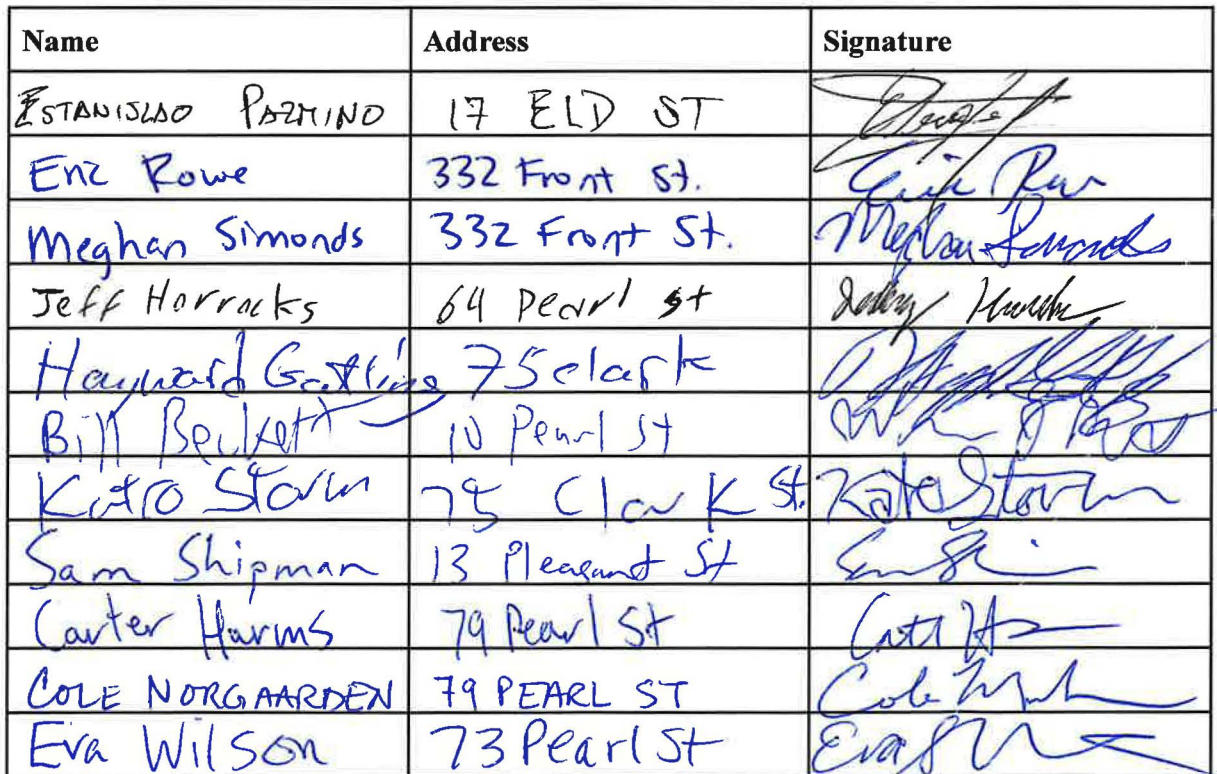 Name Address Signature
ESTANISLAO PAZMINO 17 ELD ST
Eric Rowe 332 Front St. Eric Row
Meghan Simonds 332 Front St. Meghan Simonds
Jeff Horrocks 64 Pearl st
Hayward Gatling 75 clark
Bill Beckett 10 Pearl St
Kate Storm 75 Clark St. Kate Storm
Sam Shipman 13 Pleasant St
Carter Harms 79 Pearl St
COLE NORGAARDEN 79 PEARL ST Cole
Eva Wilson 73 Pearl St Eva